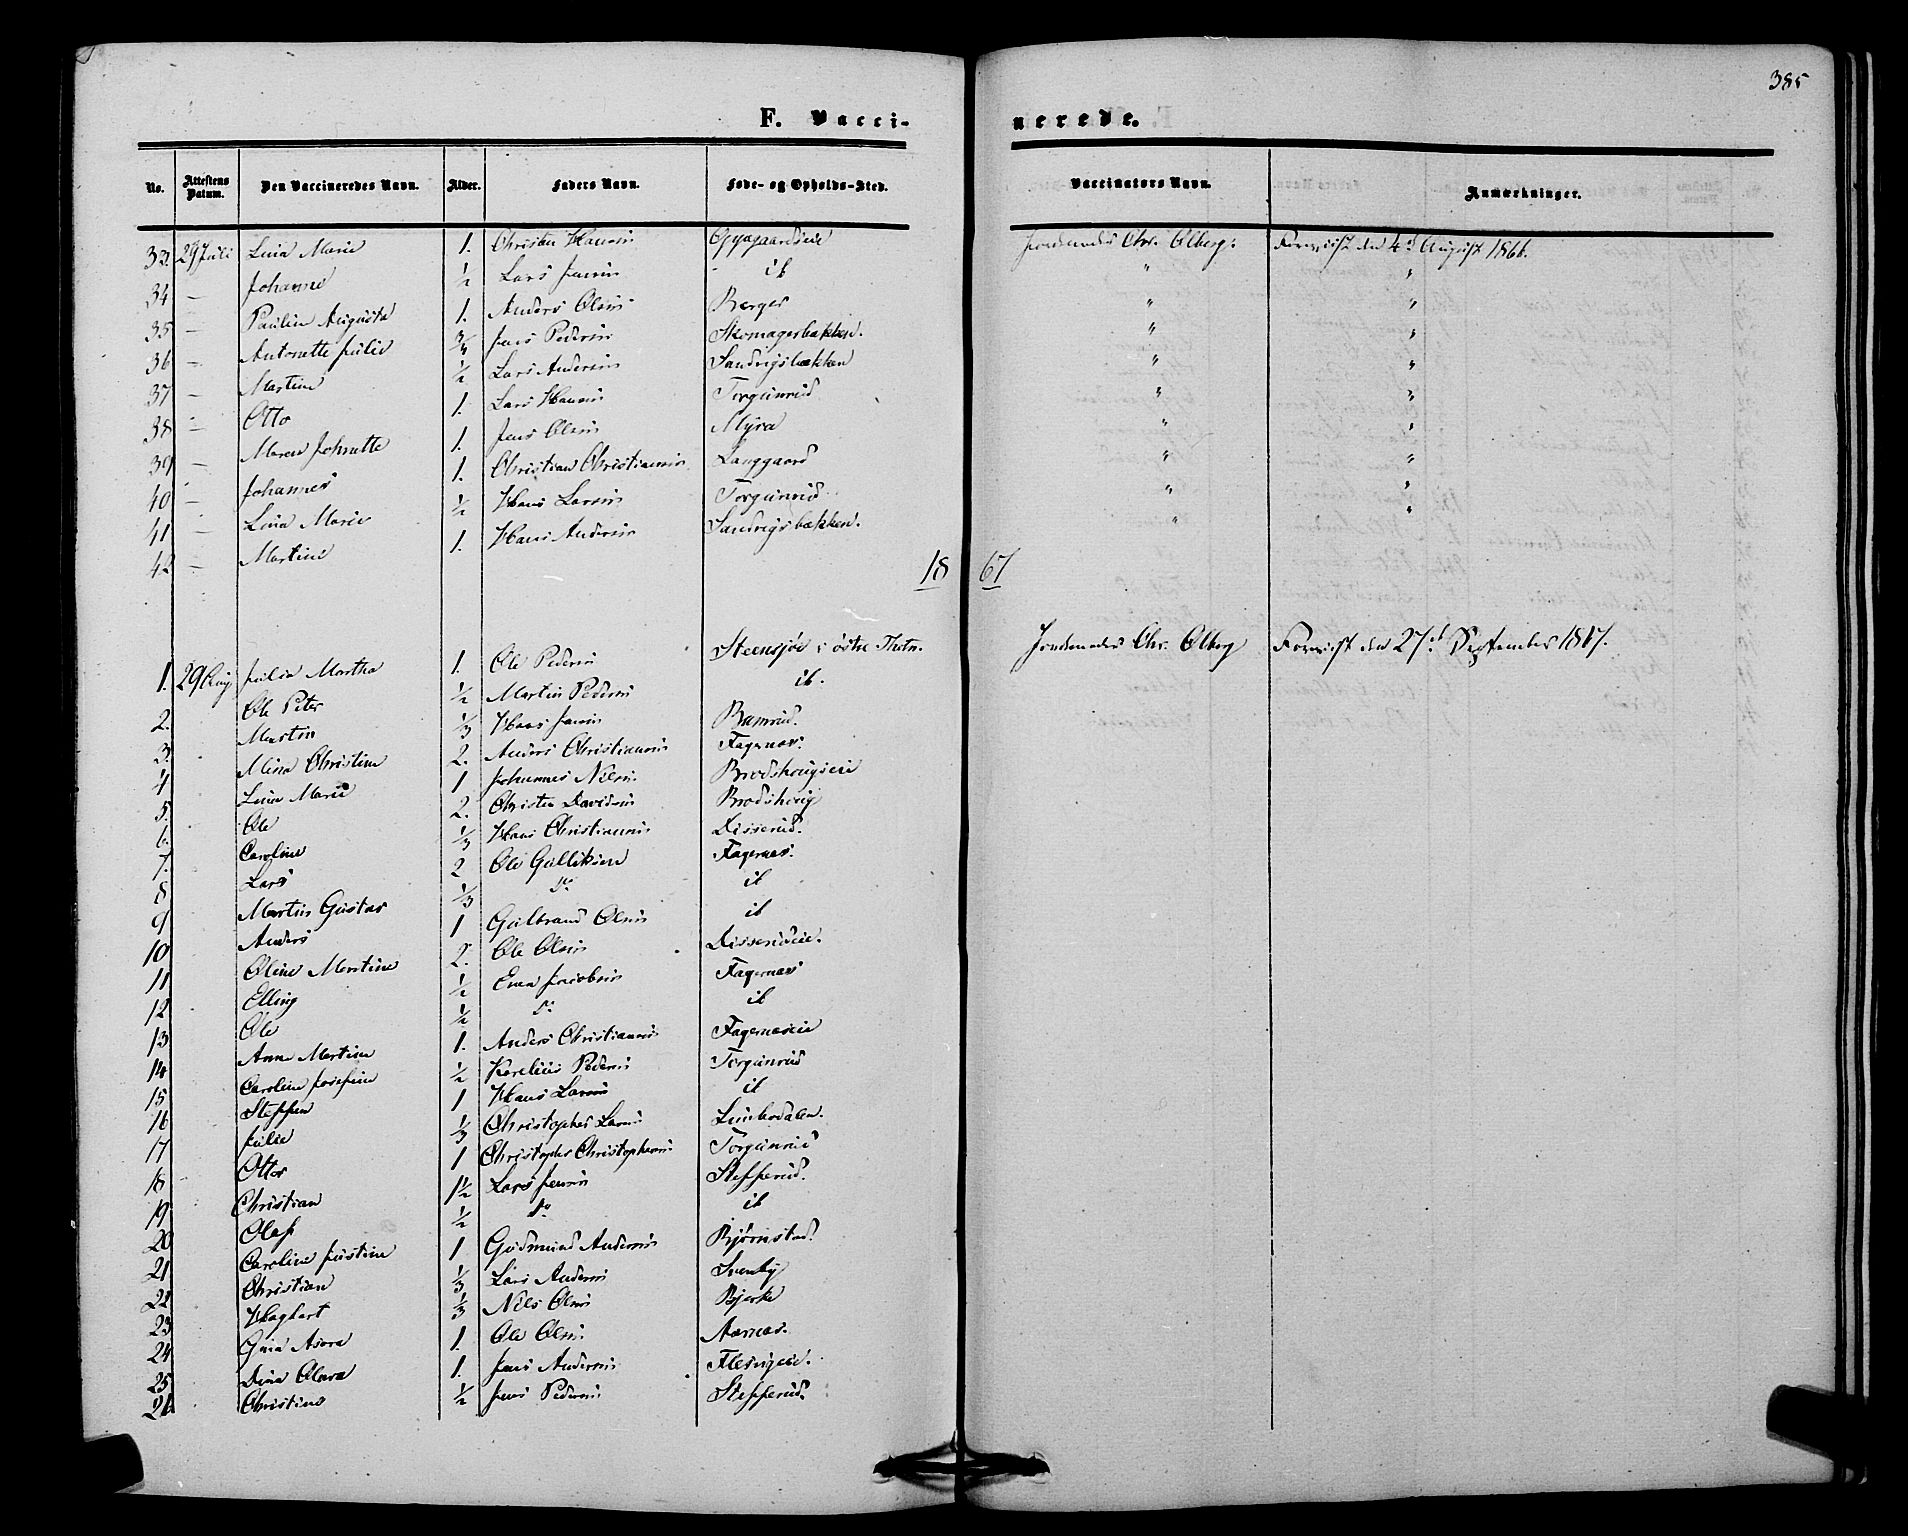 385
F. Vacci-
nerede.
No. Attestens Datum. Den Vaccineredes Navn. Alder. Faders Navn. Føde- og Opholds-Sted. Vaccinators Navn. Anmærkninger.
33. 29 Juli Lina Marie 1. Christen Hansen Chr. Olberg. Forevist den 4de August 1866.
34 — Johanne ½ Lars Jensen ib " "
35 — Pauline Augusta 1. Anders Olsen Berger " "
36 — Antonette Julie ¾ Jens Pedersen Skomagerbakken. " "
37 — Martin ½ Lars Andersen Sandvigsbakken " "
38 — Otto 1. Lars Hansen Torgunrud " "
39 — Maren Johnette 1. Jens Olsen Myra " "
40 — Johannes 1. Christian Christiansen Langgaard " "
41 — Lina Marie ½ Hans Larsen Torgunrud " "
42 — Martine 1. Hans Andersen Sandvigsbakken. " "
1867
1. 29 Aug. Julia Martha 1. Ole Pedersen Steensjøe i østre Thoten. Chr. Olberg Forevist den 27de September 1867.
2. Ole Peter ½ Martin Pedersen ib.
3. Martin ⅓ Hans Jensen Ramrud.
4 Mina Christine 2. Anders Christiansen Fagernæs.
5. Lina Marie 1 Johannes Nilsen Brodshougeie
6. Ole 2. Christen Davidsen Brodshoug
7. Caroline ⅓ Hans Christiansen Disserud.
8 Lars 2 Ole Gulliksen Fagernæs.
9 Martin Gustav ⅓ Do ib
10 Anders 1 Gulbrand Olsen ib
11 Oline Martine 2. Ole Olsen Disserudeie.
12 Elling ½ Even Jacobsen Fagernæs
13 Ole ½ Do ib
14 Anne Martine 1. Anders Christiansen Fagernæseie
15 Caroline Josefine ½ Karelius Pedersen Torgunrud
16 Steffen 1 Hans Larsen ib
17 Julie ⅓ Christopher Larsen
18 Otto 1 Christopher Christophersen Torgunrud
19 Christian 1½ Lars Jensen Stefferud.
20 Olaf ½ Do ib
21 Caroline Justine 1 Gudmund Andersen Bjørnstad.
22 Christian ⅓ Lars Andersen Svenby
23 Hagbart ⅓ Nils Olsen Bjerke
24 Gina Asora 1. Ole Olsen Aarnæs.
25 Dina Clara 1. Jens Andersen
26 Christine ½ Jens Pedersen Stefferud.